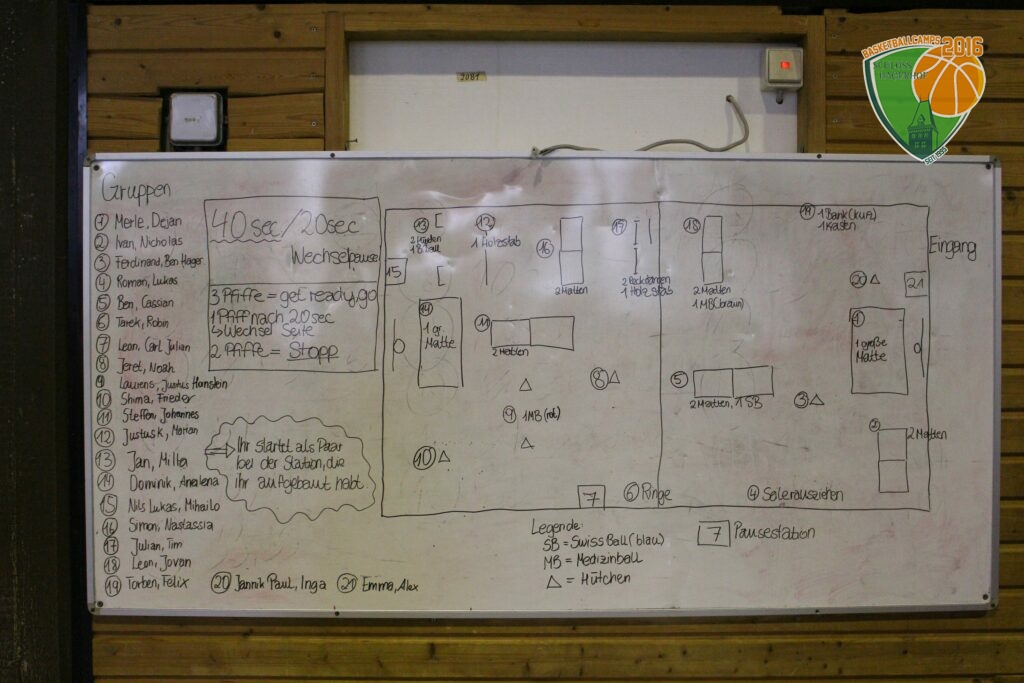 BASKETBALLCAMPS 2016
SCHLOSS
HAGERHOF
SEIT 1995
2081
Gruppen
① Merle, Dejan
② Ivan, Nicholas
③ Ferdinand, Ben Hager
④ Roman, Lukas
⑤ Ben, Cassian
⑥ Tarek, Robin
⑦ Leon, Carl Julian
⑧ Jeret, Noah
⑨ Laurens, Justus Hanstein
⑩ Shima, Frieder
⑪ Steffen, Johannes
⑫ Justus K, Marian
⑬ Jan, Milla
⑭ Dominik, Analena
⑮ Nils Lukas, Mihailo
⑯ Simon, Nastassia
⑰ Julian, Tim
⑱ Leon, Jovan
⑲ Torben, Felix
⑳ Jannik Paul, Inga
㉑ Emma, Alex
40 sec/20sec
Wechselpause
3 Pfiffe = get ready, go
1 Pfiff nach 20 sec
↳ Wechsel Seite
2 Pfiffe = Stopp
⇒ Ihr startet als Paar
bei der Station, die
ihr aufgebaut habt.
⑬
2 Hürden
1 Ball
⑫
1 Holzstab
⑯
2 Matten
⑰
1 Holzstab
⑱
2 Matten
1 MB (braun)
⑲ 1 Bank (kurz)
1 Kasten
Eingang
15
⑳ △
21
⑭
1 gr.
Matte
⑪
2 Matten
①
1 große
Matte
⑧ △
⑤
2 Matten, 1 SB
③ △
⑨ 1 MB (rot)
②
2 Matten
⑩ △
7
⑥ Ringe
④ Seilerausziehen
Legende:
SB = Swiss Ball (blau)
MB = Medizinball
△ = Hütchen
7 Pausestation